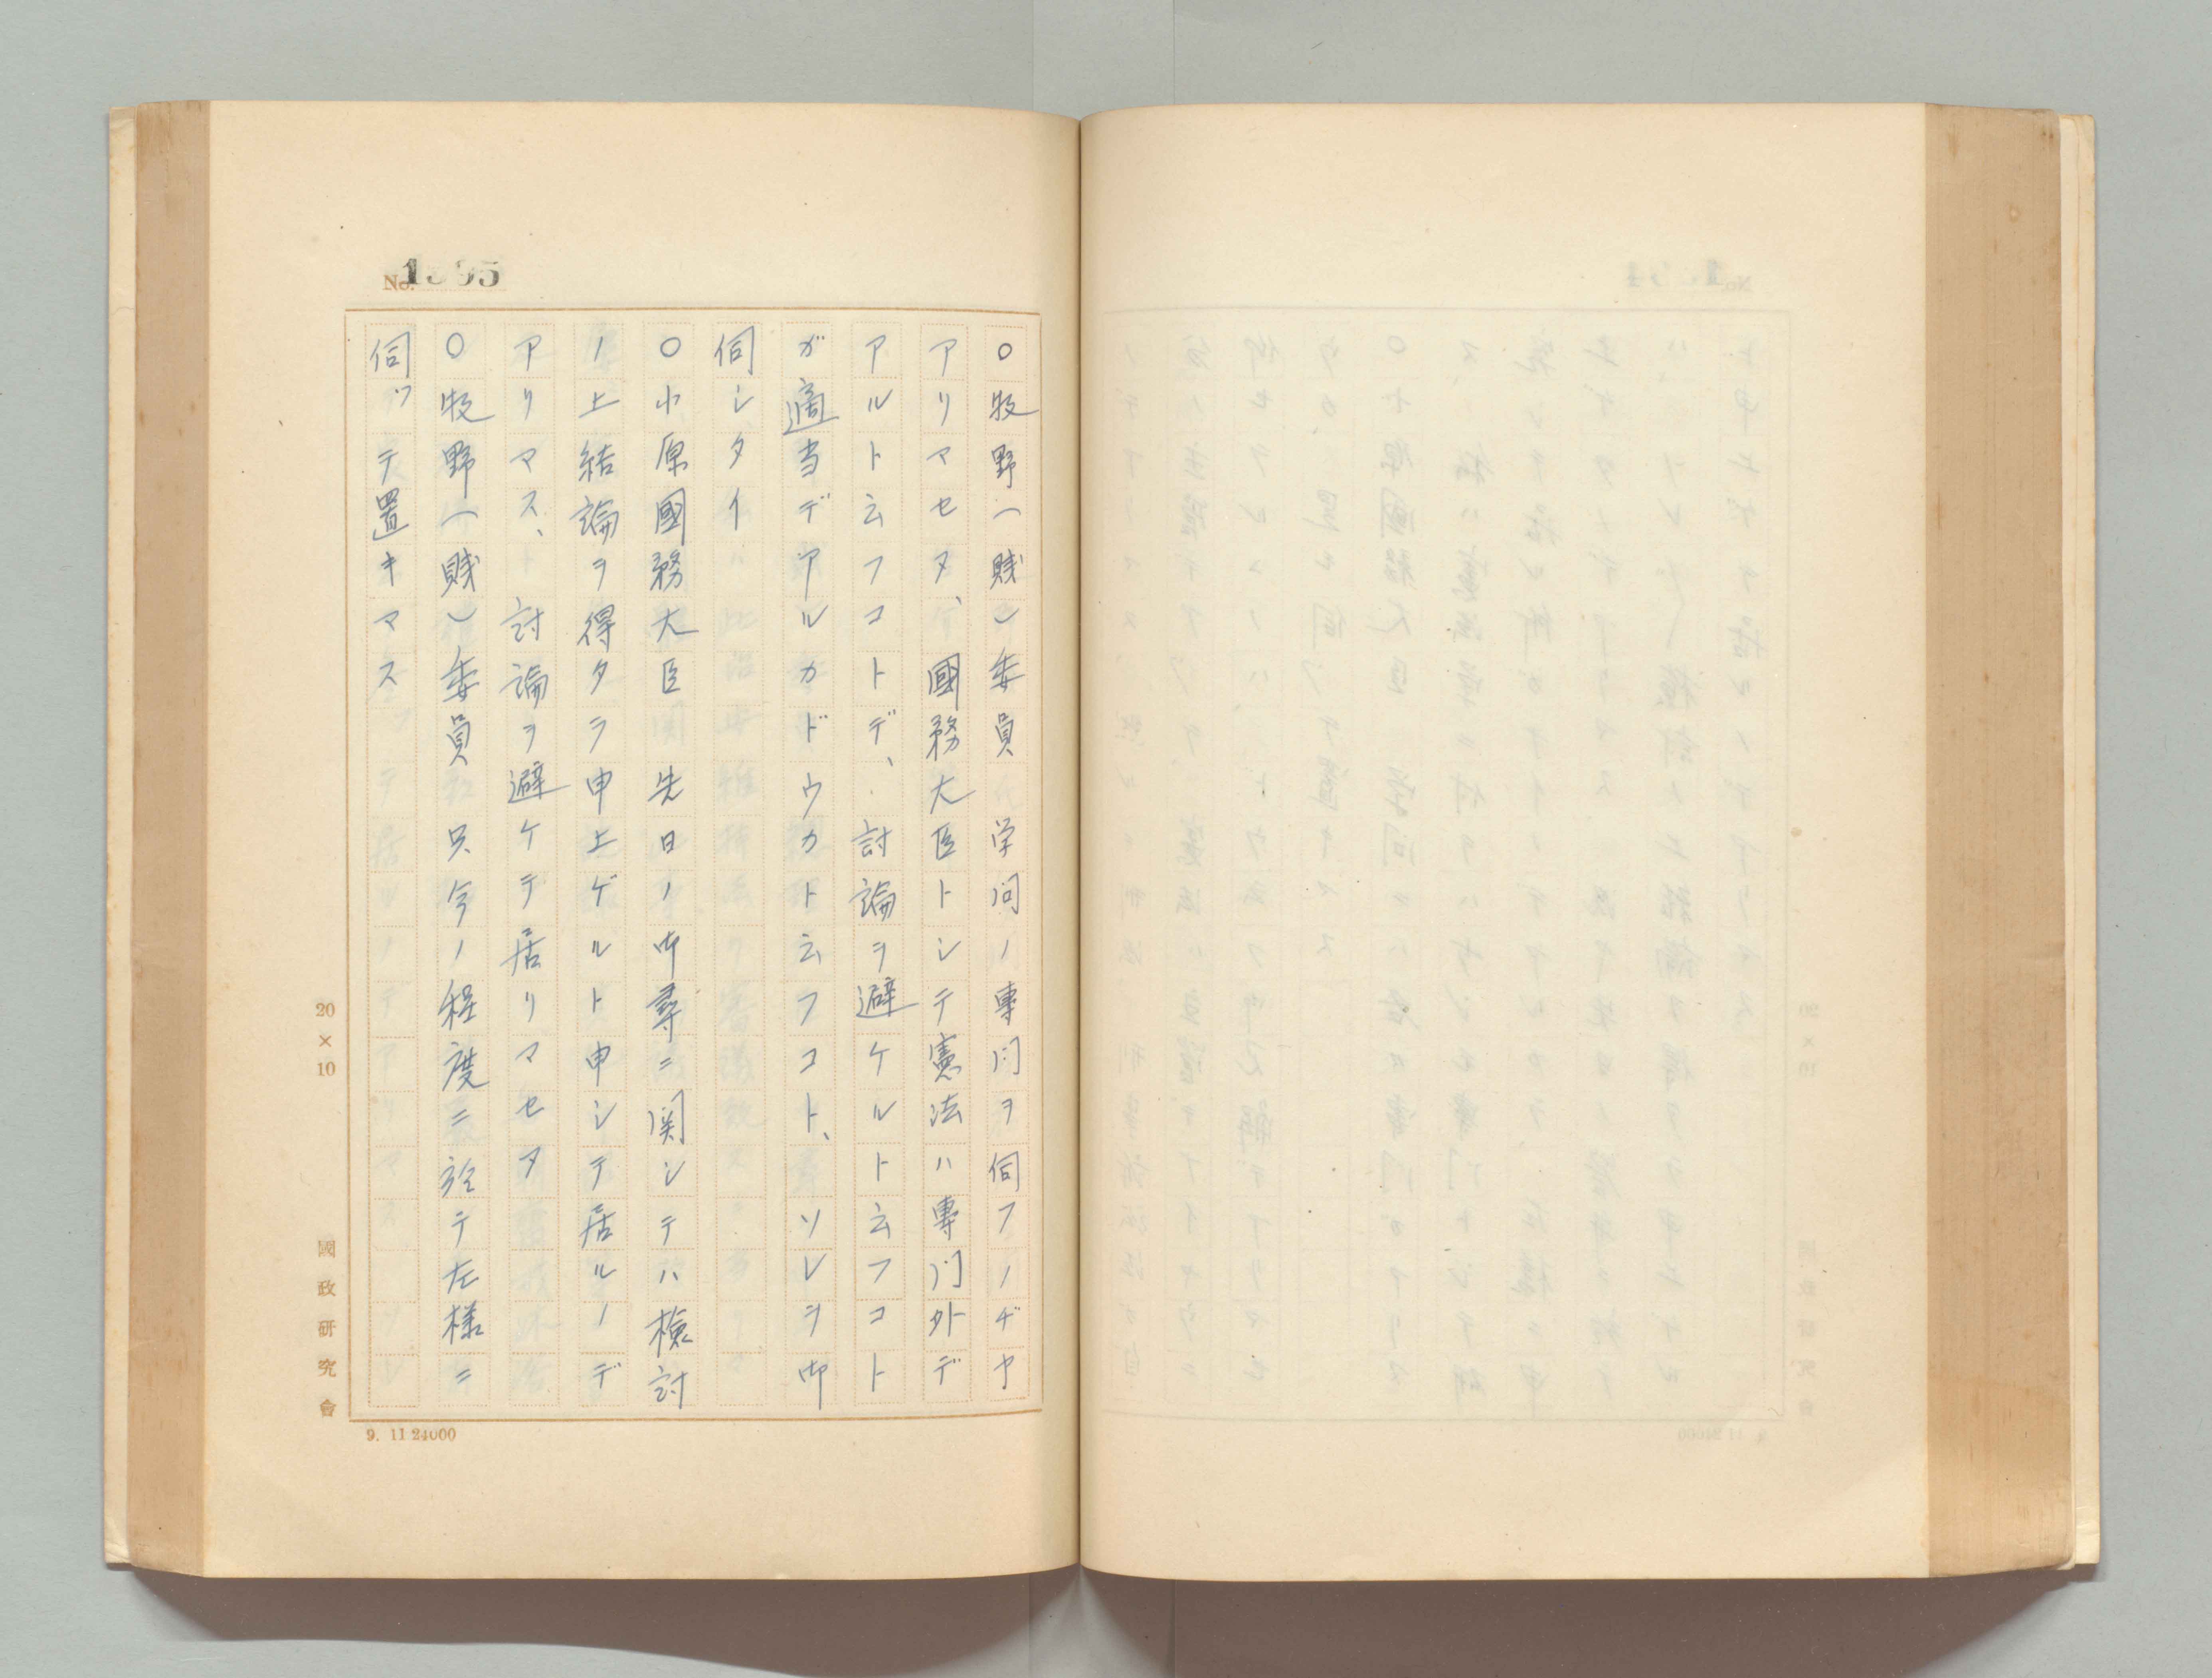 No. 1395
○牧野（賤）委員　学問ノ專门ヲ伺フノヂヤ
アリマセヌ、國務大臣トシテ憲法ハ專门外デ
アルト云フコトデ、討論ヲ避ケルト云フコト
ガ適当デアルカドウカト云フコト、ソレヲ御
伺シタイ
○小原國務大臣　先日ノ御尋ニ関シテハ檢討
ノ上結論ヲ得タラ申上ゲルト申シテ居ルノデ
アリマス、討論ヲ避ケテ居リマセヌ
○牧野（賤）委員　只今ノ程度ニ於テ左様ニ
伺ッテ置キマス
20×10
國政研究會
9. 11 24000